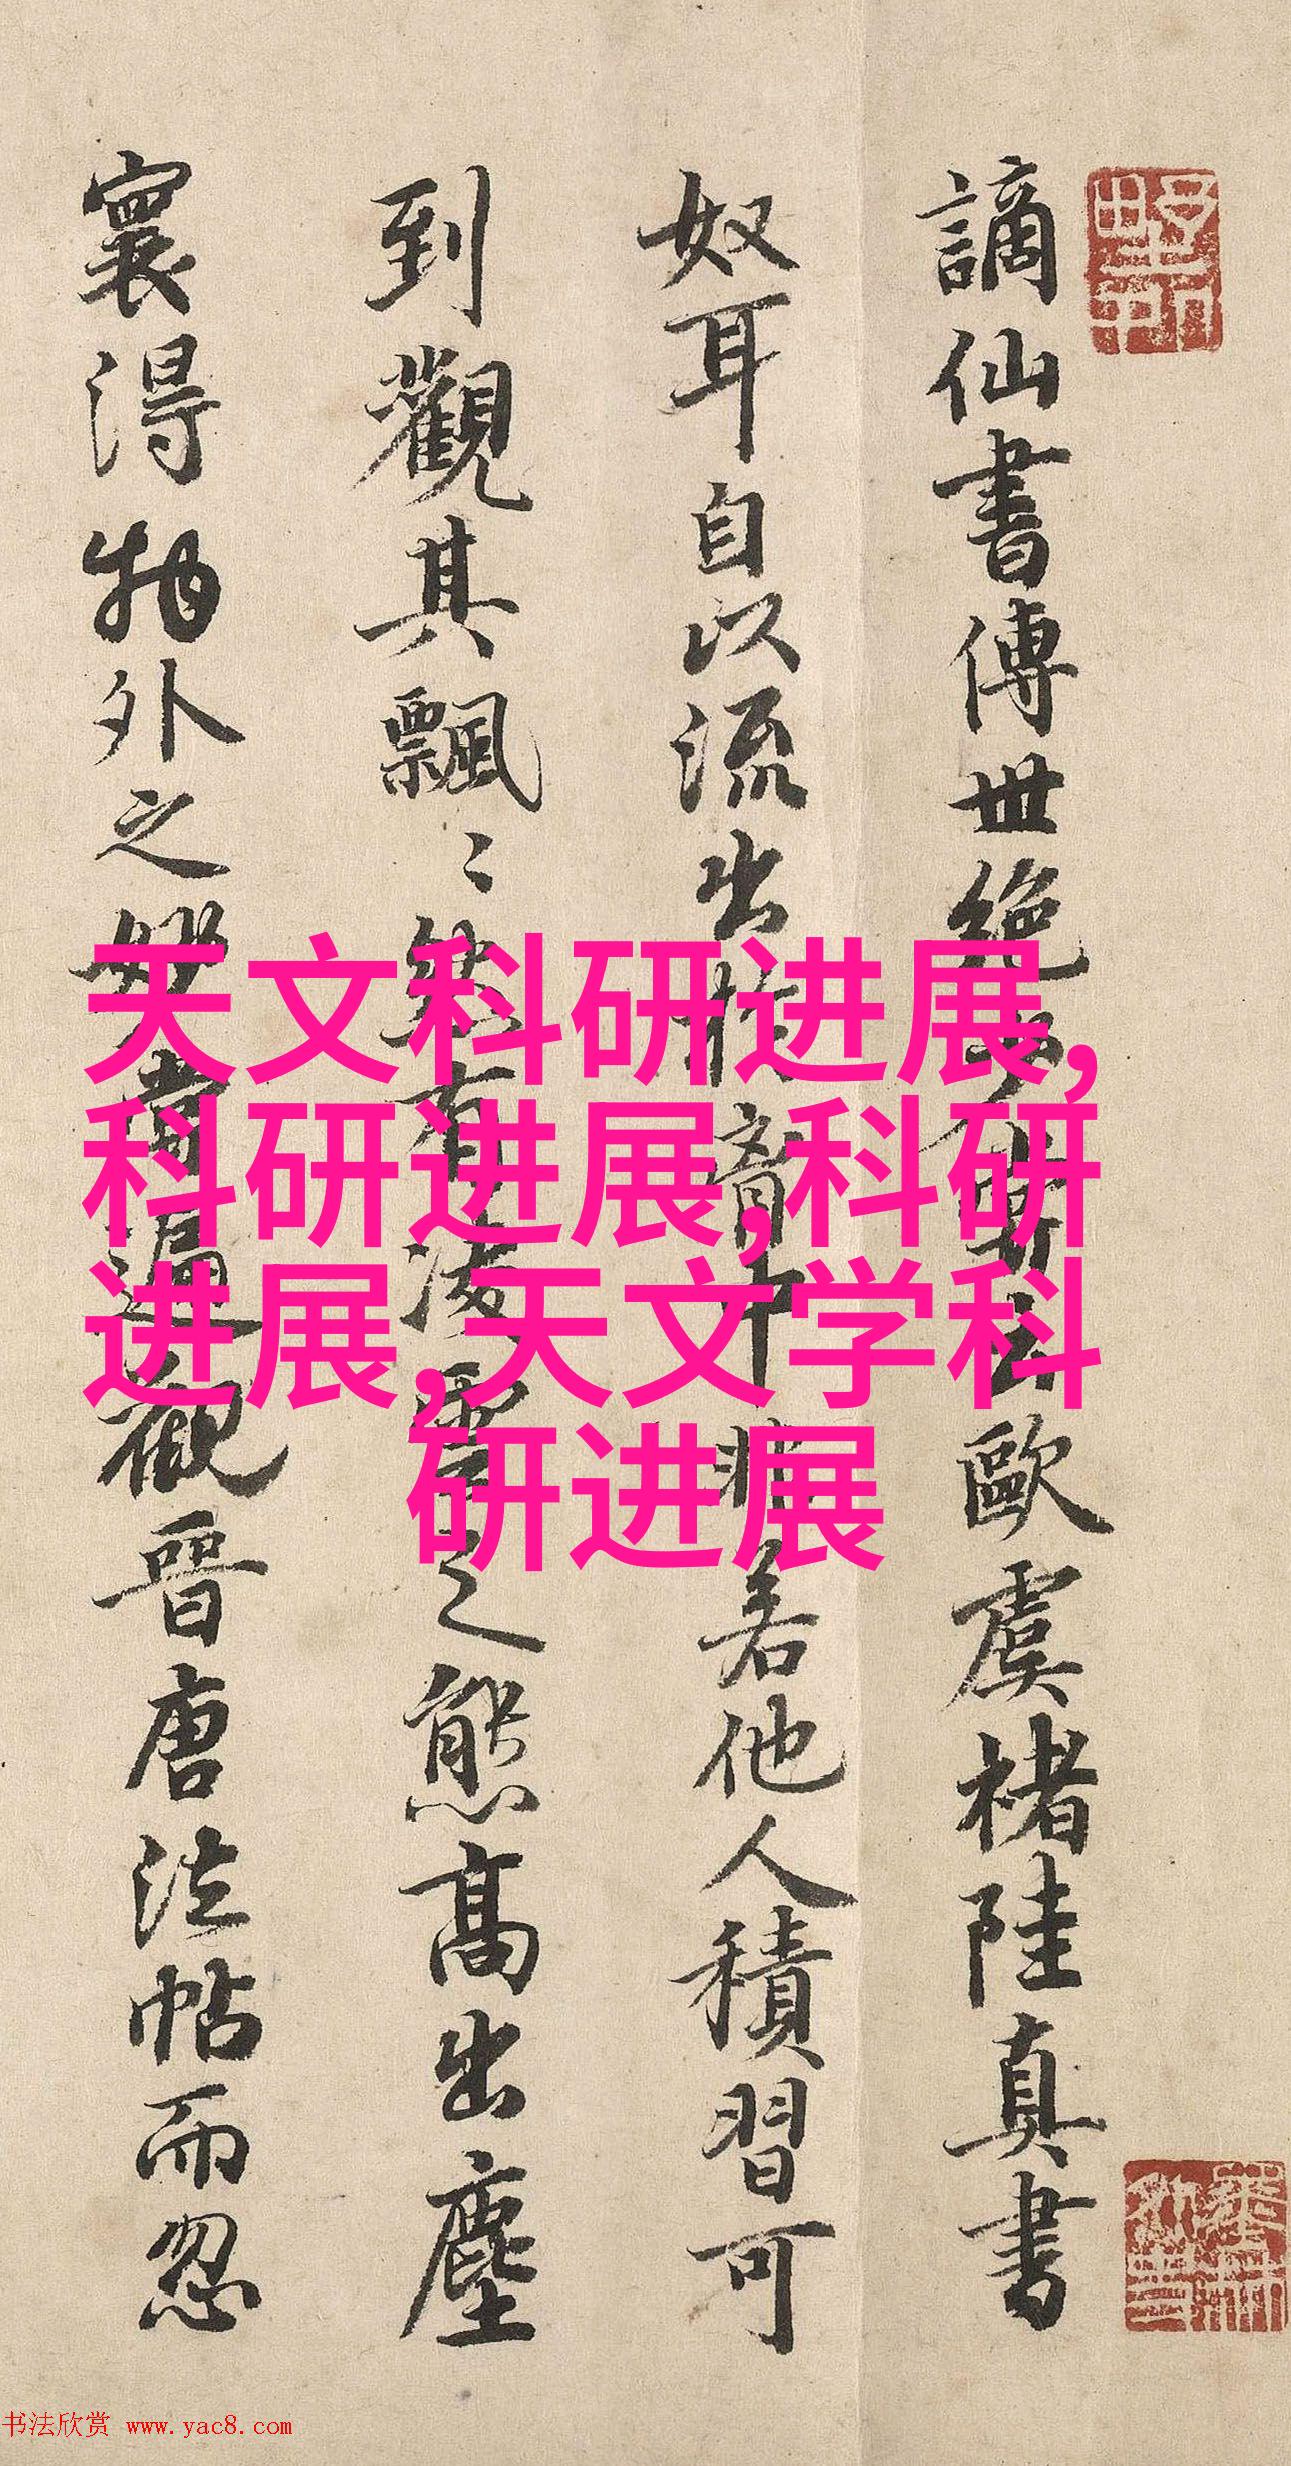 謫仙書傳世絕少嘗云歐虞褚陸真書
奴耳自以流出於胷中非若他人積習可
到觀其飄〻然有凌雲之態高出塵
寰得物外之妙嘗遍觀晉唐法帖而忽
天文科研进展,
科研进展,科研
进展,天文学科
研进展
书法欣赏 www.yac8.com